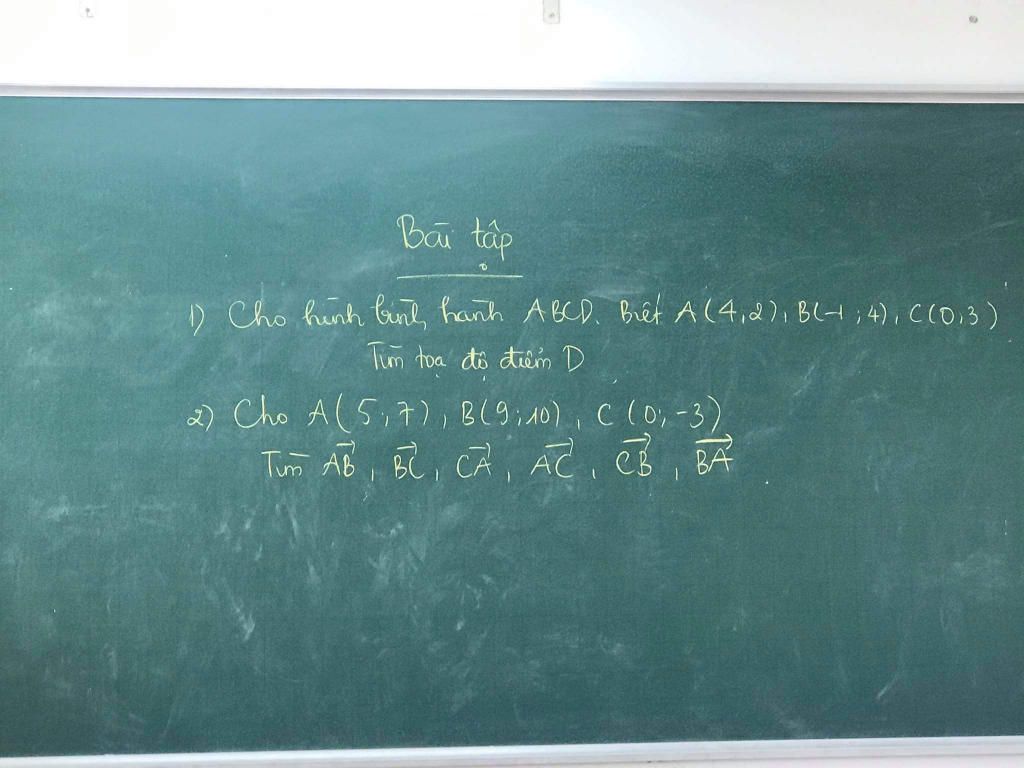 Bài tập
1) Cho hình bình hành ABCD. Biết A(4;2), B(-1;4), C(0;3)
Tìm tọa độ điểm D
2) Cho A(5;7), B(9;10), C(0;-3)
Tìm \overrightarrow{AB}, \overrightarrow{BC}, \overrightarrow{CA}, \overrightarrow{AC}, \overrightarrow{CB}, \overrightarrow{BA}